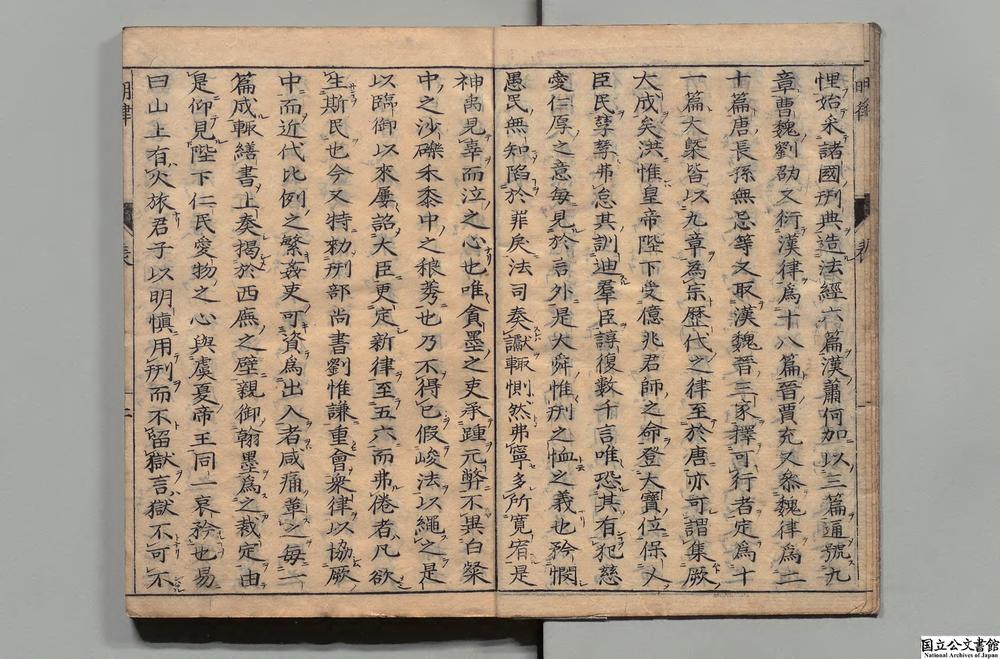 悝始采諸國刑典造法經六篇漢蕭何加以三篇通號九
章曹魏劉劭又衍漢律爲十八篇晉賈充又叅魏律爲二
十篇唐長孫無忌等又取漢魏晉三家擇可行者定爲十
一篇大槩皆以九章爲宗歷代之律至於唐亦可謂集厥
大成矣洪惟皇帝陛下受億兆君師之命登大寶位保乂
臣民孳孳弗怠其訓迪羣臣諄復數千言唯恐其有犯慈
愛仁厚之意每見於言外是大舜惟刑之恤之義也矜憫
愚民無知陷於罪戾法司奏讞輒惻然弗寧多所寬宥是
神禹見辜而泣之心也唯貪墨之吏承踵元弊不異白粲
中之沙礫禾黍中之稂莠也乃不得已假峻法以繩之是
以臨御以來屢詔大臣更定新律至五六而弗倦者凡欲
生斯民也今又特勑刑部尚書劉惟謙重會衆律以協厥
中而近代比例之繁姦吏可資爲出入者咸痛革之每一
篇成輒繕書上奏揭於西廡之壁親御翰墨爲之裁定由
是仰見陛下仁民愛物之心與虞夏帝王同一哀矜也易
曰山上有火旅君子以明愼用刑而不留獄言獄不可不
国立公文書館
National Archives of Japan